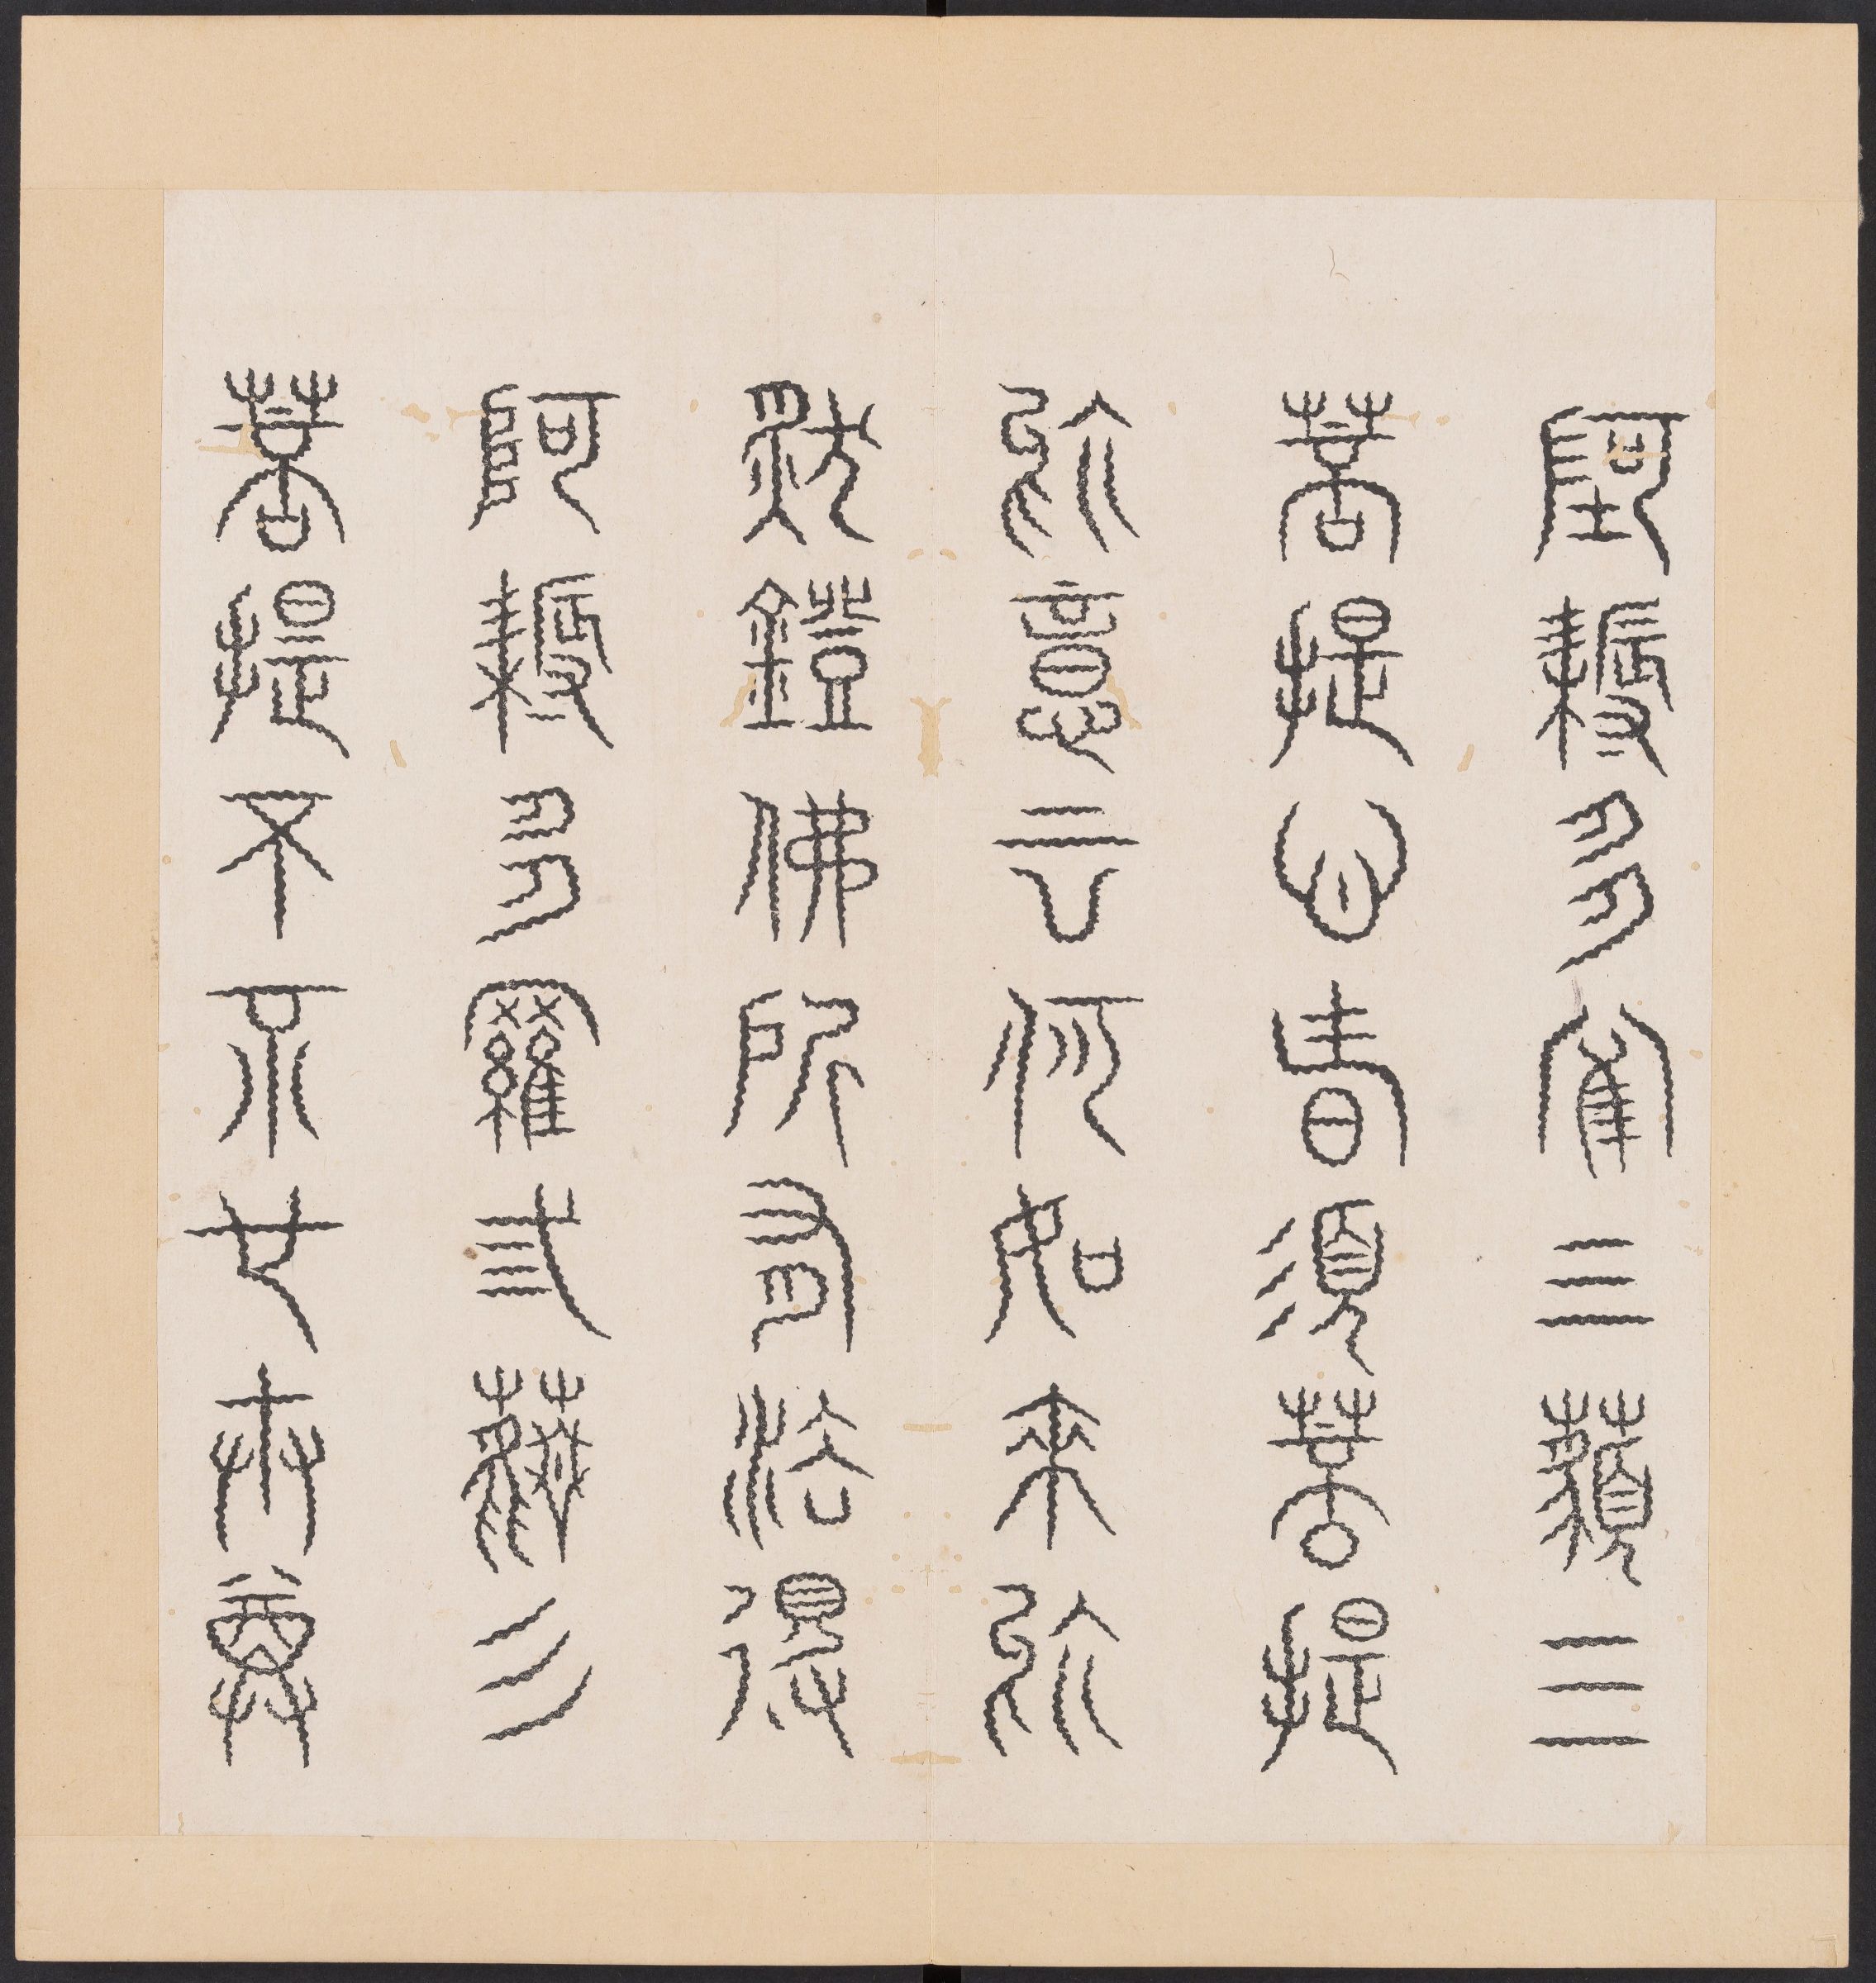 阿耨多羅三藐三
菩提心者須菩提
於意云何如來於
然燈佛所有法得
阿耨多羅三藐三
菩提不不也世尊